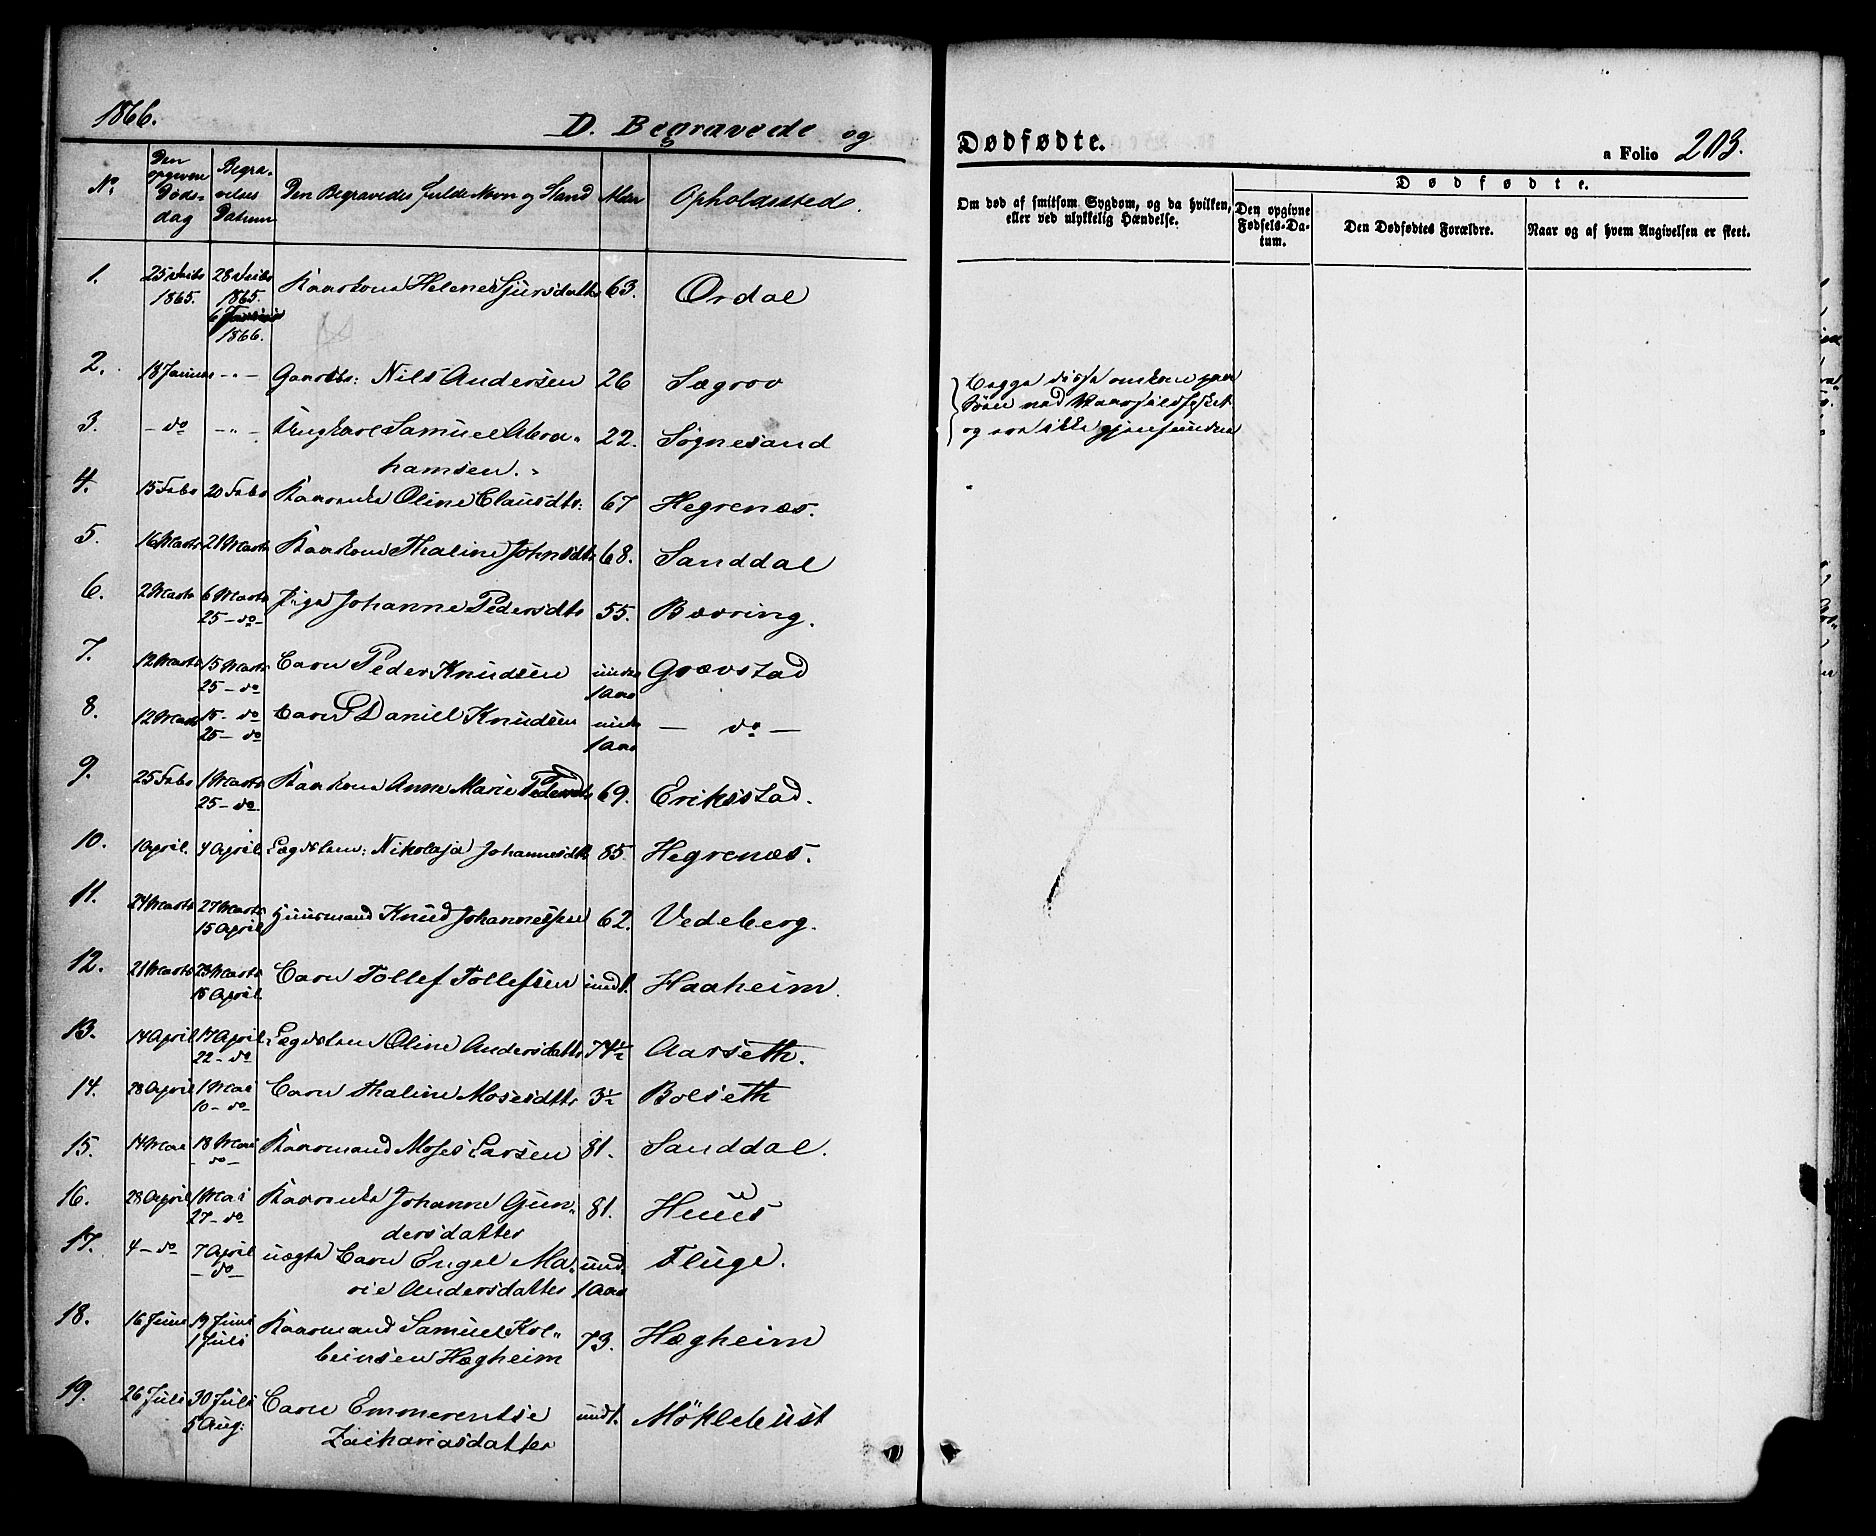 1866.
D. Begravede og
Dødfødte.
a Folio 203.
No
Den opgivne Døds-dag
Begra-velses Datum
Den Begravedes fulde Navn og Stand
Alder
Opholdssted.
Om død af smitsom Sygdom, og da hvilken, eller ved ulykkelig Hændelse.
Dødfødte.
Den opgivne Fødsels-Da-tum.
Den Dødfødtes Forældre.
Naar og af hvem Angivelsen er skeet.
1. 25 1865. 28 1865. 6 1866. Kaarkone Helene Sjursdatter 63. Ordal
2. 18 Januar -"- Nils Andersen 26 Sægrov
Begge disse omkom paa
Søen ved Vaarsildfisket
og ere ikke gjenfundne
3. - do -"- Ungkarl Samuel Abra-
hamsen. 22. Søgnesand
4. 15 Febr 20 Febr Kaarenke Oline Clausdtr: 67 Hegrenæs.
5. 16 Marts 21 Marts Kaarkone Thaline Johnsdtr 68. Sanddal
6. 2 Marts 6 Marts Pige Johanne Pedersdtr 55. Bævring.
25 - do -
7. 12 Marts 15 Marts Barn Peder Knudsen under Grævstad
25 - do 1 Aar
8. 12 Marts 15 - do Barn Daniel Knudsen under - do -
25 - do 1 Aar
9. 25 Febr 1 Marts Kaarkone Anne Marie Pedersdtr 69. Eriksstad.
25 - do
10. 1 April. 4 April. Lægdslem: Nikolaja Johannesdtr 85. Hegrenæs.
11. 24 Marts 27 Marts Huusmand Knud Johannessen 62. Vedeberg.
15 April
12. 21 Marts 23 Marts Barn Tollef Tollefsen und 1. Haaheim.
15 April.
13. 14 April 17 April Lægdslem Oline Andersdatter 74½ Aarseth.
22 - do
14. 28 April 1 Mai Barn Thaline Mosesdtr 3½ Bolseth
10 - do
15. 14 Mai 18 Mai Kaarmand Moses Larsen 81. Sanddal.
- do -
16. 28 April 1 Mai Kaarenke Johanne Gun-
27 - do dersdatter 81. Huus
17. 4 - do 7 April uægte Barn Engel Ma- und. Fluge.
- do - rie Andersdatter 1 Aar
18. 16 Juni 19 Juni Kaarmand Samuel Kol-
1 Juli beinsen Hægheim 73. Hægheim
19. 26 Juli 30 Juli Barn Emmerentse und 1. Møklebust
5 Aug: Zachariasdatter